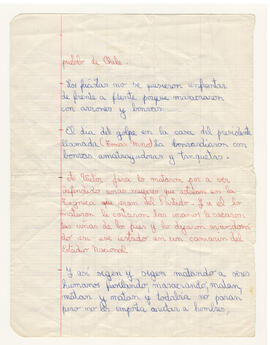 pueblo de Chile.
- Los fácistas no se pusieron enfrentar
de frente a frente porque masacraron
con abiones y bonvas
- El dia del golpe en la casa del presidente
llamada (Tomas Moro) la bonvardiaron con
bonvas amatrayadoras y tanquetas.
- de Víctor Jara lo mataron por a ver
defendido unas mujeres que estavan en la
tegnica que eran del Partido. Y a el lo
mataron le cortaron las manos le sacaron
las uñas de los pies y lo dejaron
do en ese estado en un camarin del
Estadio Nacional.
- Y así sigen y sigen matando a séres
humanos fucilando, masacrando, matan,
matan y matan y todabia no paran
pero no les importa matar a hombres,